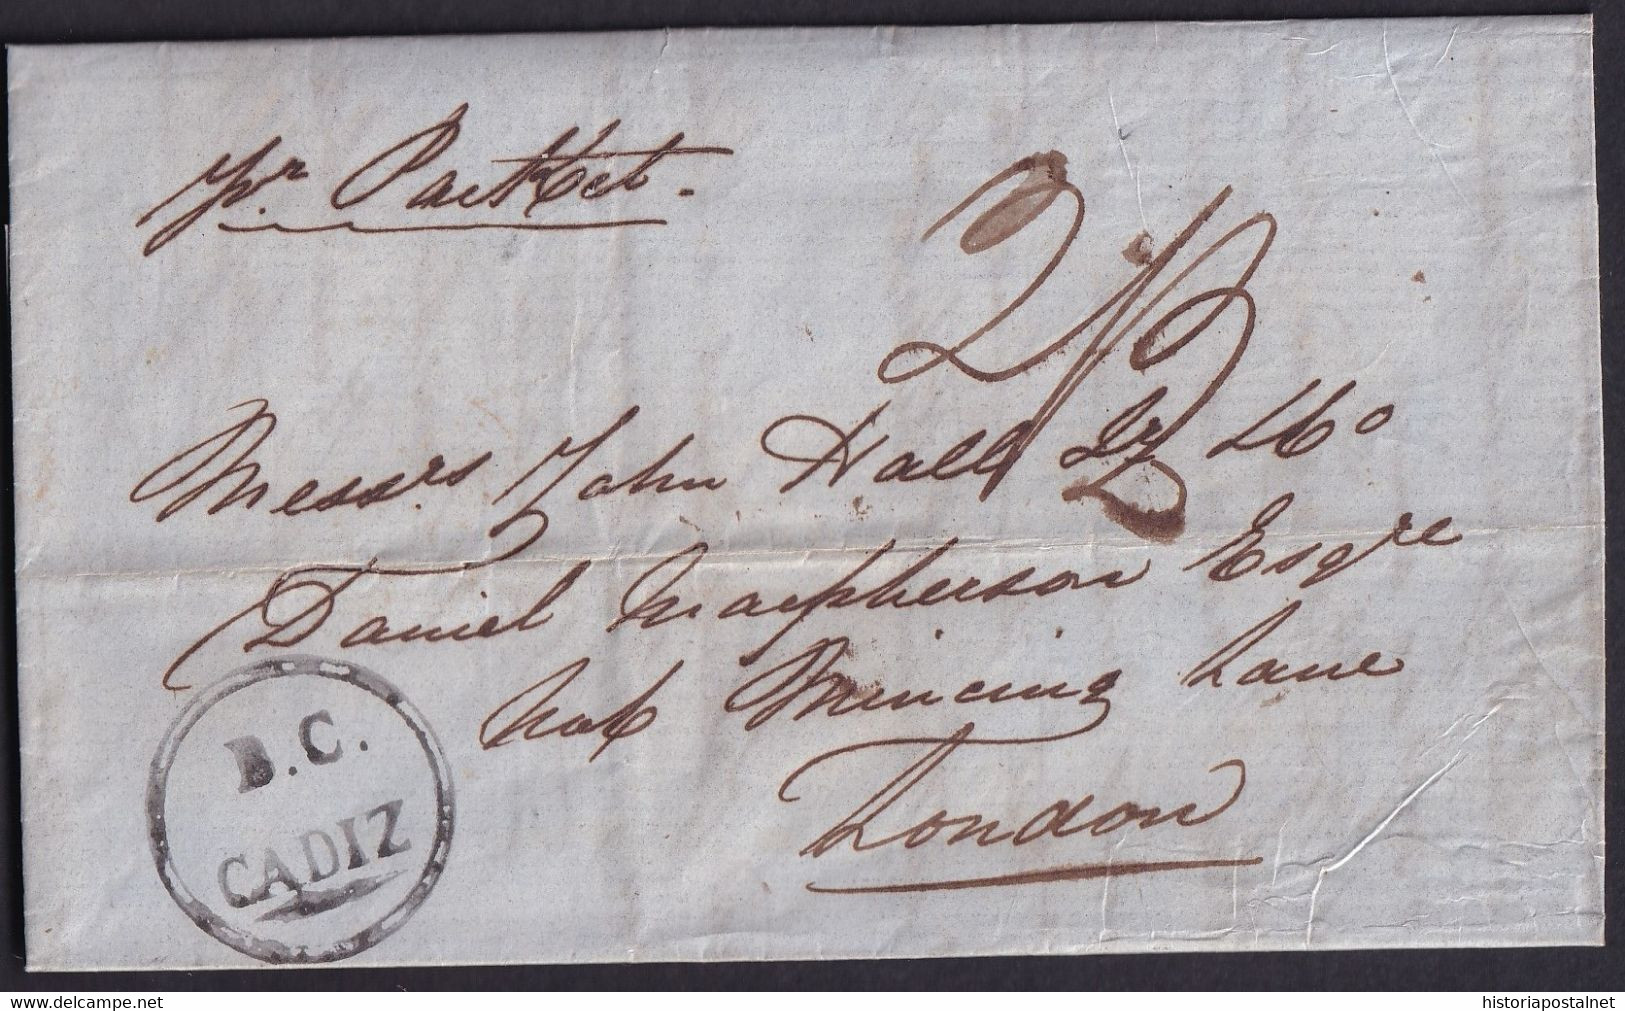 pr. Packet.
2/2
Messrs. John Hall Jr & Co
Daniel Macpherson Esqre
Mincing Lane
London
B.C.
CADIZ
delcampe.net
historiapostalnet